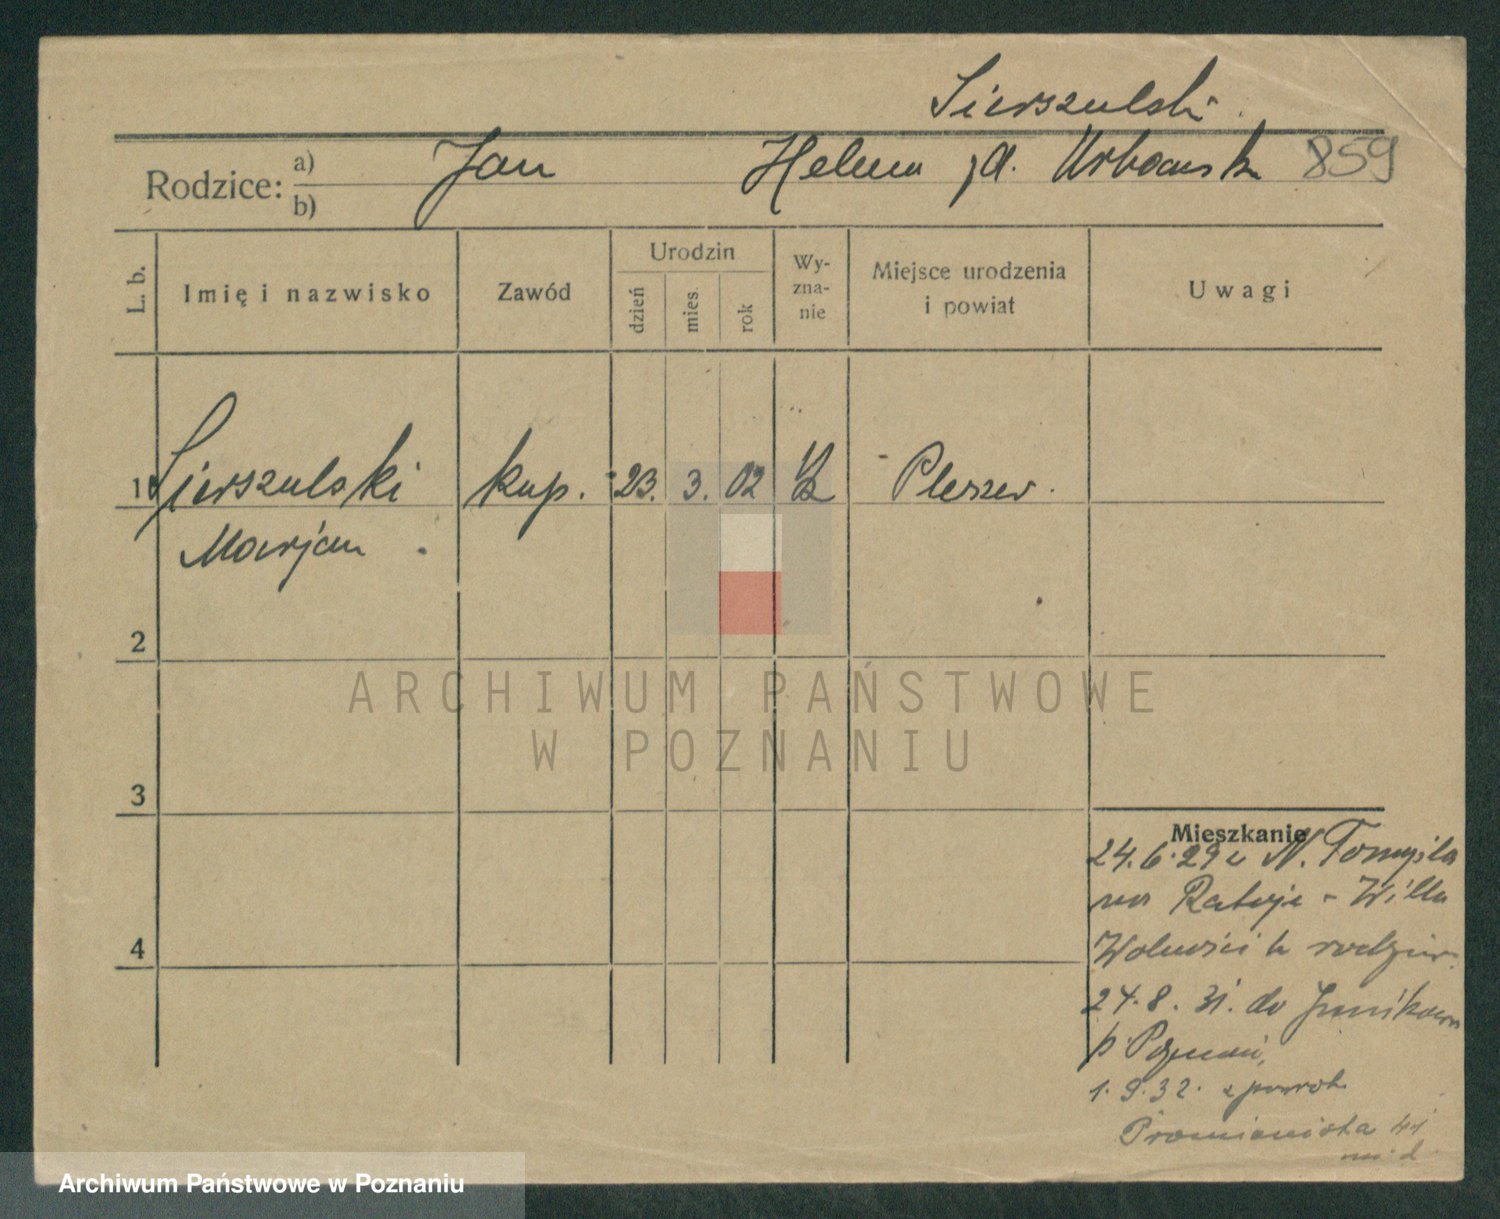 Sierszulski.
Rodzice: a) Jan Helena Urbańsk 859
b)
L. b. Imię i nazwisko Zawód Urodzin dzień mies. rok Wy-zna-nie Miejsce urodzenia i powiat Uwagi
1 Sierszulski kup. 23. 3. 02 Pleszew.
Marjan.
2
ARCHIWUM PAŃSTWOWE
W POZNANIU
3
Mieszkanie
24.6.29 z N. Tomyśla
na Rataje - Willa
Wolności
24.8.31. do Junikowa
p. Poznań,
1.9.32. z powrot
4
Archiwum Państwowe w Poznaniu